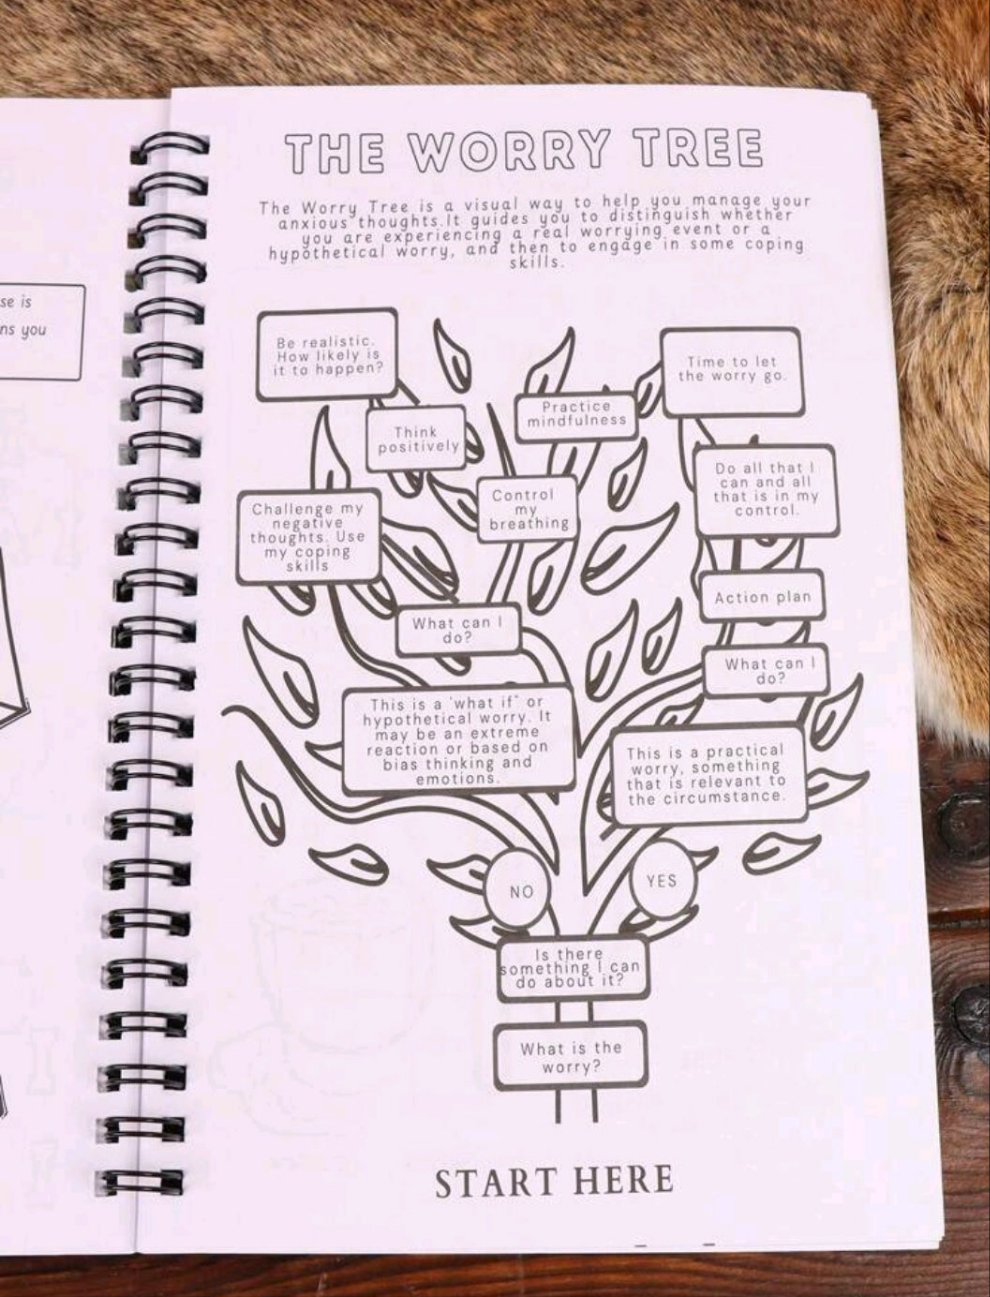 se is
ns you
THE WORRY TREE
The Worry Tree is a visual way to help you manage your
anxious thoughts.It guides you to distinguish whether
you are experiencing a real worrying event or a
hypothetical worry, and then to engage in some coping
skills.
Be realistic.
How likely is
it to happen?
Time to let
the worry go.
Practice
mindfulness
Think
positively
Do all that I
can and all
that is in my
control.
Control
my
breathing
Challenge my
negative
thoughts. Use
my coping
skills
Action plan
What can I
do?
What can I
do?
This is a "what if" or
hypothetical worry. It
may be an extreme
reaction or based on
bias thinking and
emotions.
This is a practical
worry, something
that is relevant to
the circumstance.
NO
YES
Is there
something I can
do about it?
What is the
worry?
START HERE